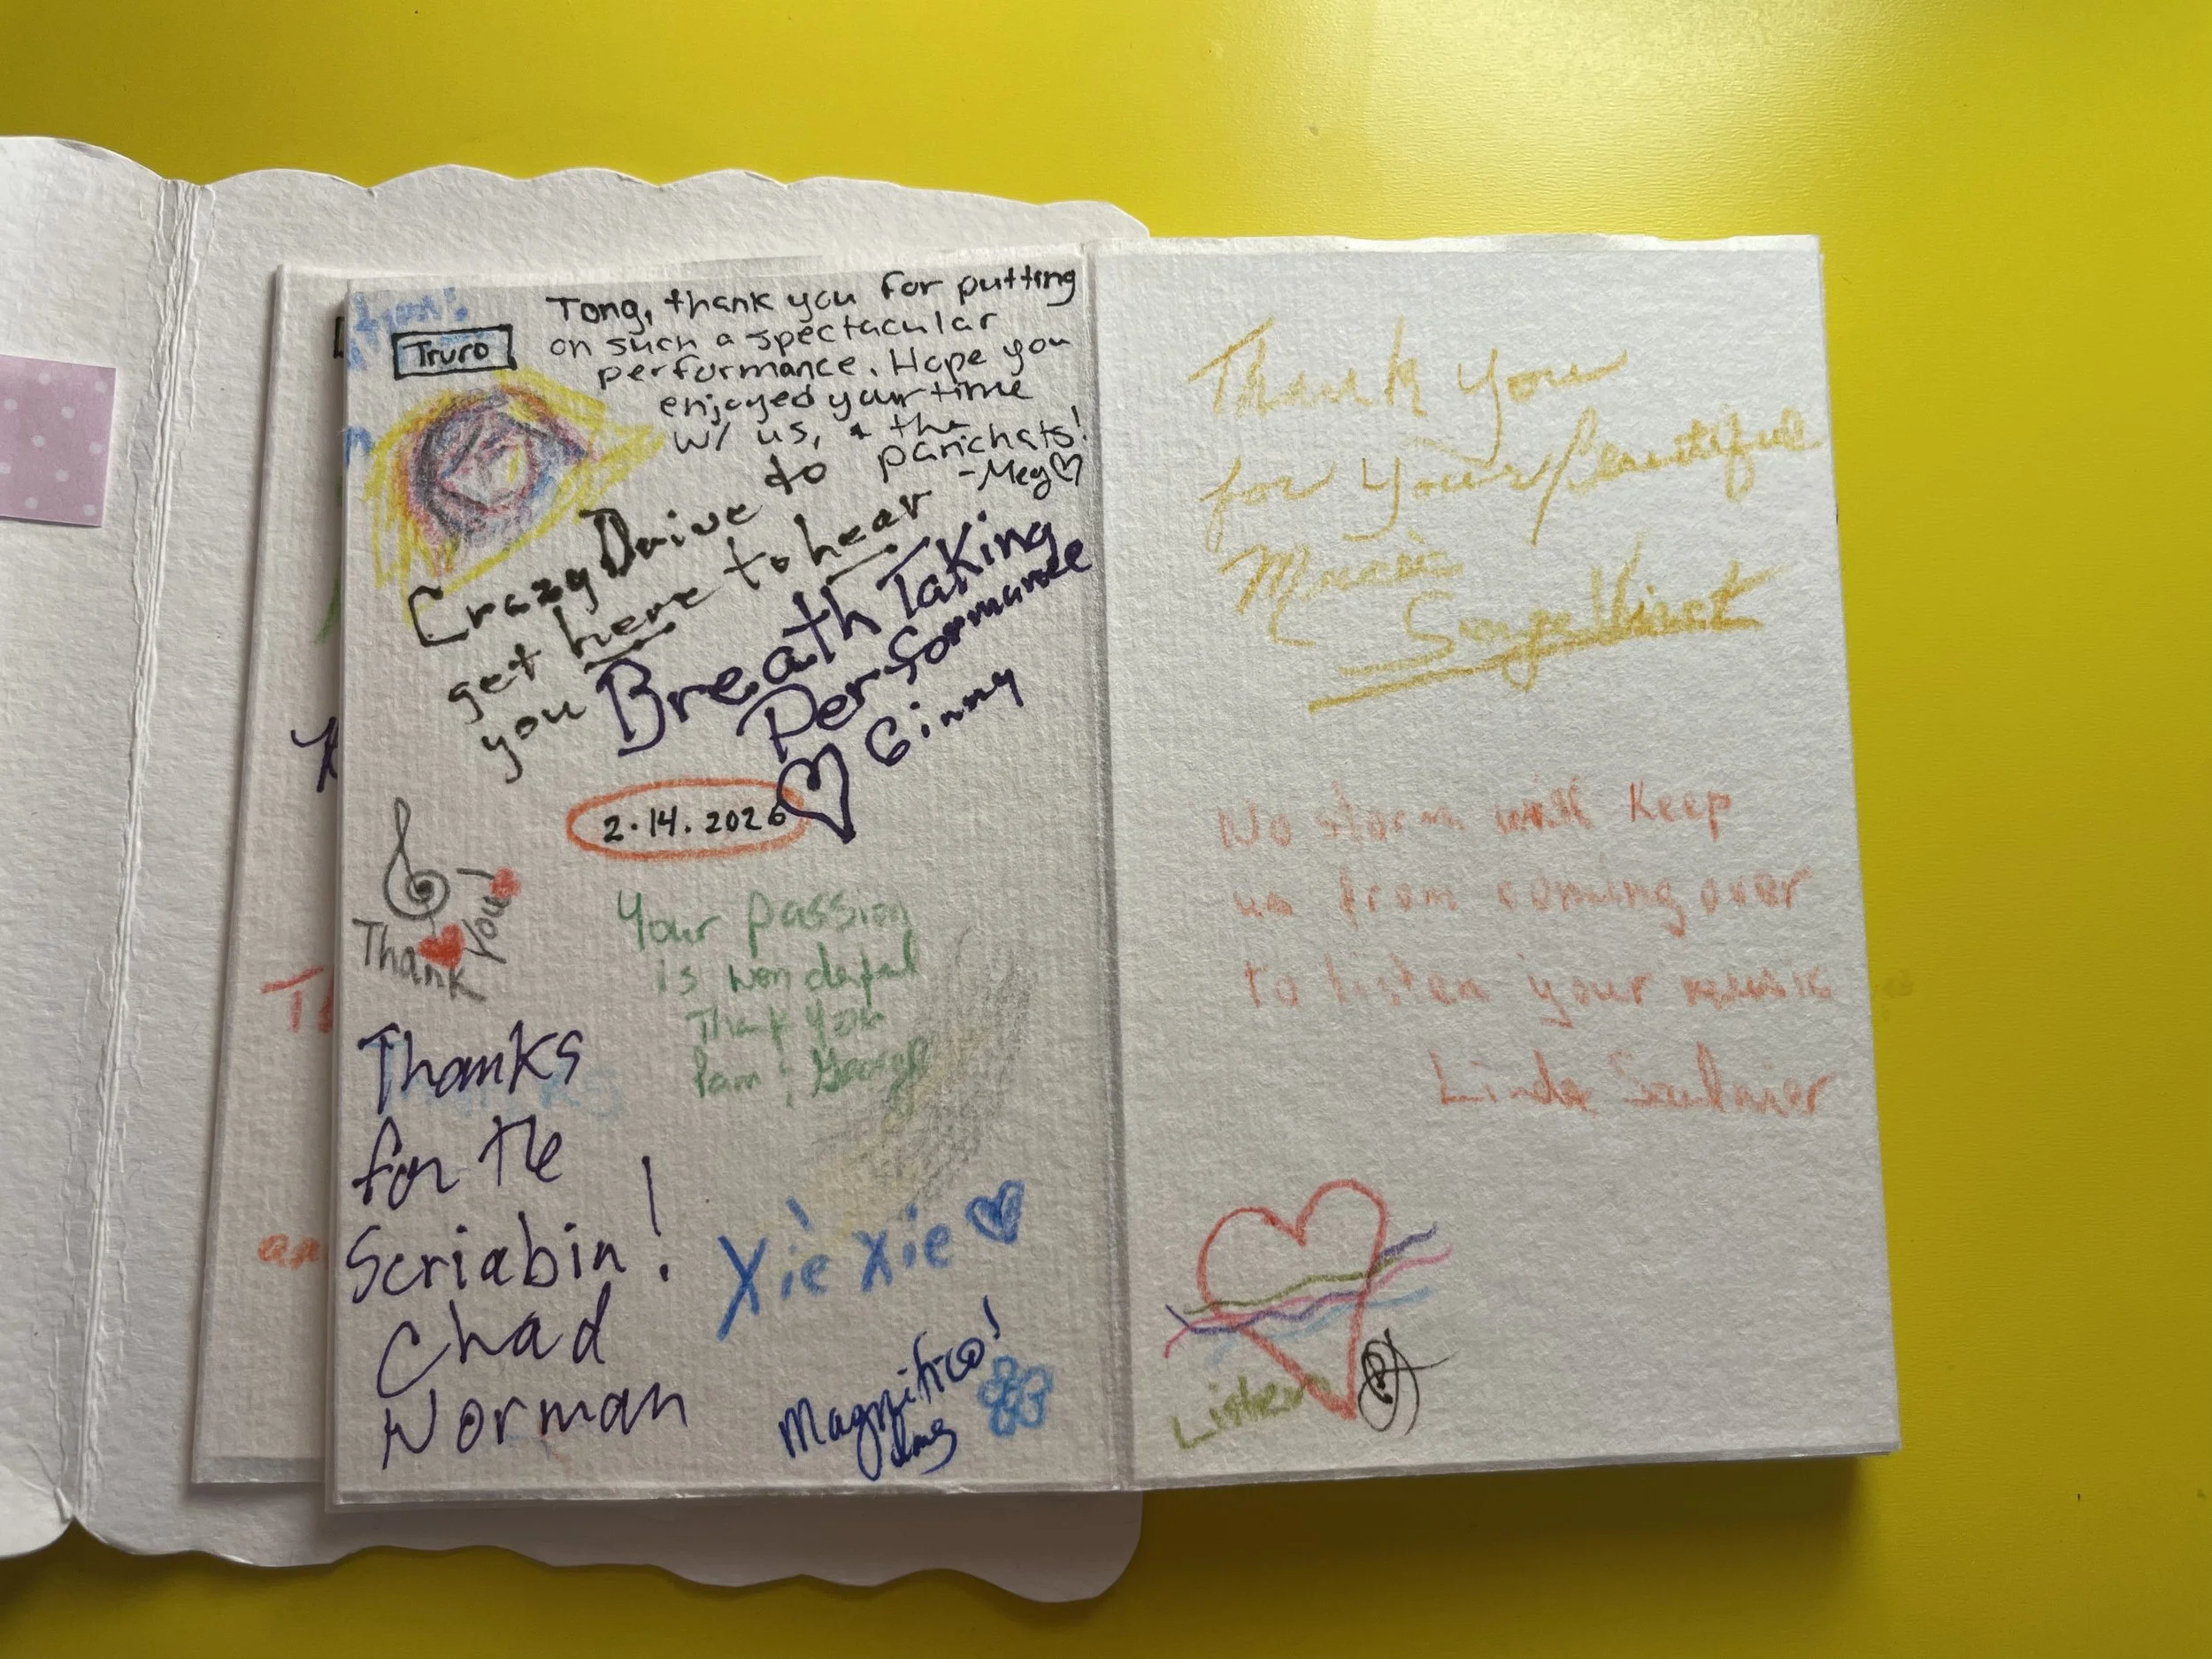 Truro
Tong, thank you for putting
on such a spectacular
performance. Hope you
enjoyed your time
w/ us, + the
panchats!
-Meg
Crazy Drive to
get here to hear
you Breath Taking
Performance
Ginny
2.14.2026
Thank You!
Your passion
is wonderful
Thank you
Pam & George
Thanks
for the
Scriabin!
Chad
Norman
Xiè Xie
Magnifico!
Thank you
for your beautiful
Music
No storm will keep
us from coming over
to listen your music
Linda Saulnier
Listen